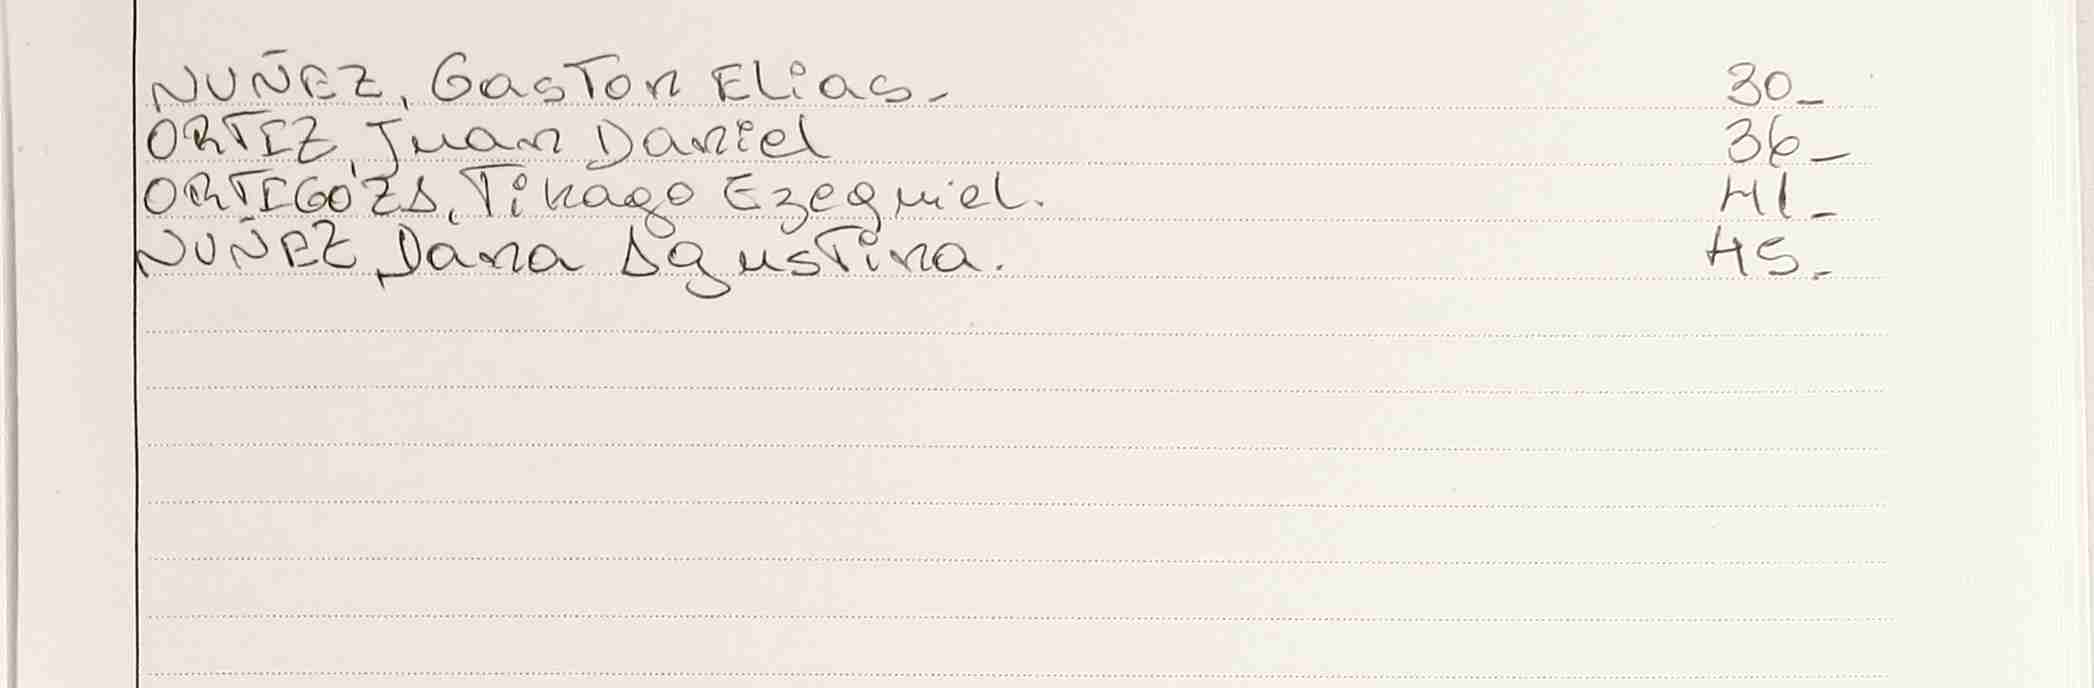 NUÑEZ, Gaston Elias. 30_
ORTIZ, Juan Daniel 36_
ORTIGOZA, Tihago Ezequiel. 41_
NUÑEZ, Dana Agustina. 45_